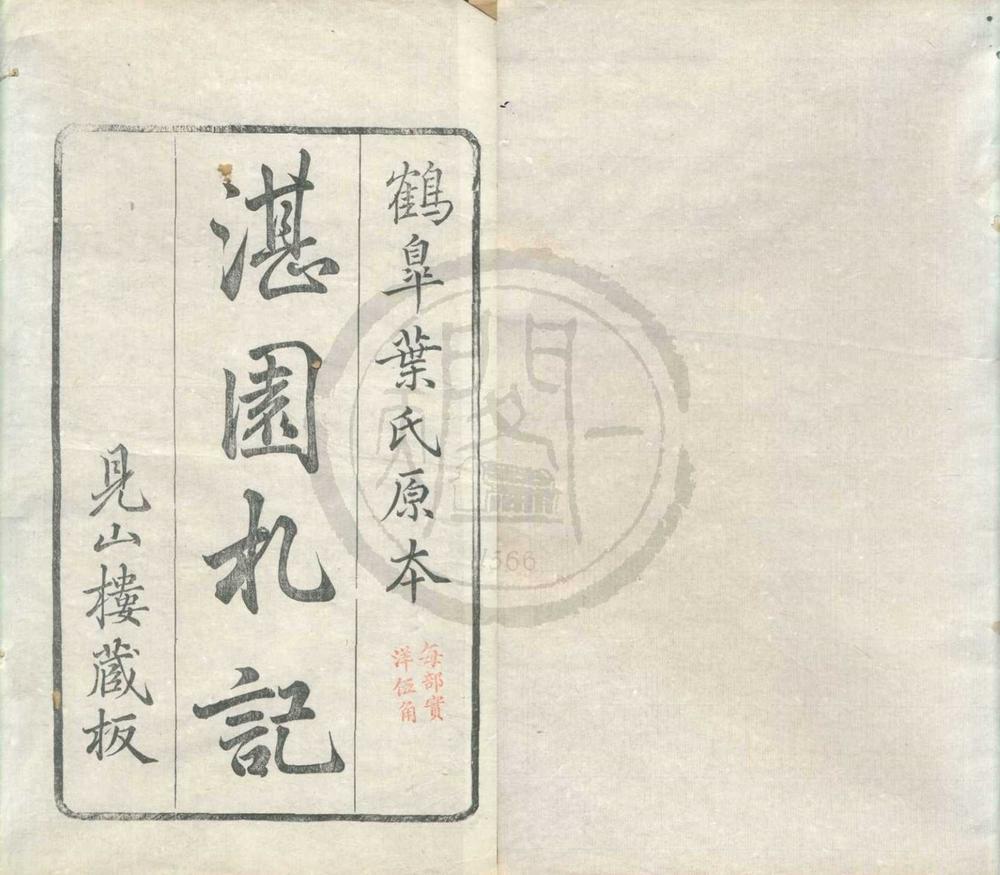 鶴皐葉氏原本
每部實
洋伍角
湛園札記
見山樓藏板
1566